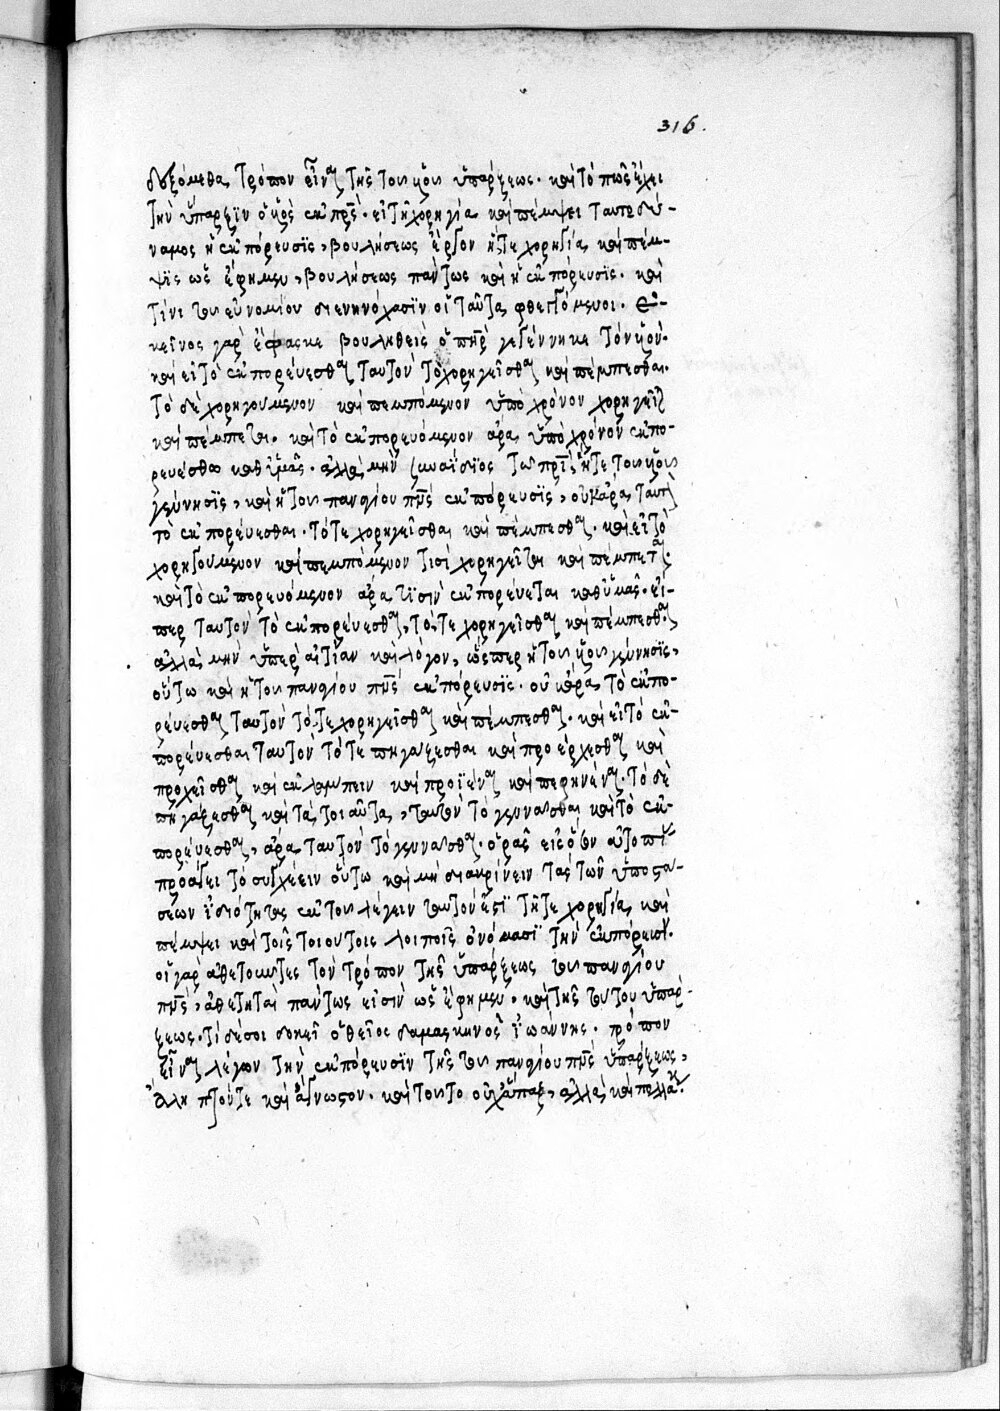 316.
δεξόμεθα τρόπον εἶναι τῆς τοῦ υἱοῦ ὑπάρξεως. καὶ τὸ πῶς ἔχει
τὴν ὕπαρξιν ὁ υἱὸς ἐκ πρς. εἰ τῇ χορηγίᾳ καὶ πέμψει ταυτοδύ-
ναμος ἡ ἐκπόρευσις, βουλήσεως ἔργον ἥ τε χορηγία καὶ πέμ-
ψις ὡς ἔφημεν, βουλήσεως πάντως καὶ ἡ ἐκπόρευσις. καὶ
τίνι τοῦ εὐνομίου διενηνόχασιν οἱ ταῦτα φθεγγόμενοι. ἐ-
κεῖνος γὰρ ἔφασκε βουληθεὶς ὁ πηρ γεγέννηκε τὸν υἱόν.
καὶ εἰ τὸ ἐκπορεύεσθαι ταυτὸν τὸ χορηγεῖσθαι καὶ πέμπεσθαι.
τὸ δὲ χορηγούμενον καὶ πεμπόμενον ὑπὸ χρόνον χορηγεῖται
καὶ πέμπεται. καὶ τὸ ἐκπορευόμενον ἄρα ὑπὸ χρόνον ἐκπο-
ρεύεσθαι καθ' ὑμᾶς. ἀλλὰ μὴν συναΐδιος τῷ πρὶ, ἥ τε τοῦ υἱοῦ
γέννησις, καὶ ἡ τοῦ παναγίου πνς ἐκπόρευσις, οὐκ ἄρα ταυτὸ
τὸ ἐκπορεύεσθαι. τό τε χορηγεῖσθαι καὶ πέμπεσθαι. καὶ εἰ τὸ
χορηγούμενον καὶ πεμπόμενον τισὶ χορηγεῖται καὶ πέμπεται.
καὶ τὸ ἐκπορευόμενον ἄρα τισὶν ἐκπορεύεται καθ' ὑμᾶς. εἴ-
περ ταυτὸν τὸ ἐκπορεύεσθαι, τό τε χορηγεῖσθαι καὶ πέμπεσθαι
ἀλλὰ μὴν ὑπὲρ αἰτίαν καὶ λόγον, ὥσπερ ἡ τοῦ υἱοῦ γέννησις,
οὕτω καὶ ἡ τοῦ παναγίου πνς ἐκπόρευσις. οὐκ ἄρα τὸ ἐκπο-
ρεύεσθαι ταυτὸν τό τε χορηγεῖσθαι καὶ πέμπεσθαι. καὶ εἰ τὸ ἐκ-
πορεύεσθαι ταυτὸν τό τε πηγάζεσθαι καὶ προέρχεσθαι καὶ
προχεῖσθαι καὶ ἐκλάμπειν καὶ προϊέναι καὶ πεφηνέναι. τὸ δὲ
πηγάζεσθαι καὶ τὰ τοιαῦτα, ταυτὸν τὸ γεννᾶσθαι καὶ τὸ ἐκ-
πορεύεσθαι, ἄρα ταυτὸν τὸ γεννᾶσθαι. ὁρᾷς εἰς ὅσον ἀτοπί
προάγει τὸ συγχέειν οὕτω καὶ μὴ διακρίνειν τὰς τῶν ὑποστά-
σεων ἰδιότητας ἐκ τοῦ λέγειν ταυτόν ἐστι τῇ τε χορηγίᾳ καὶ
πέμψει καὶ τοῖς τοιούτοις λοιποῖς ὀνόμασι τὴν ἐκπόρευσιν.
οἱ γὰρ ἀθετοῦντες τὸν τρόπον τῆς ὑπάρξεως τοῦ παναγίου
πνς, ἀθετηταὶ πάντως εἰσὶν ὡς ἔφημεν, καὶ τῆς τούτου ὑπάρ-
ξεως. τί δέ σοι δοκεῖ ὁ θεῖος δαμασκηνὸς ἰωάννης. τρόπον
εἶναι λέγων τὴν ἐκπόρευσιν τῆς τοῦ παναγίου πνς ὑπάρξεως,
ἄληπτόν τε καὶ ἄγνωστον. καὶ τοῦτο οὐχ ἅπαξ, ἀλλὰ καὶ πολλάκις